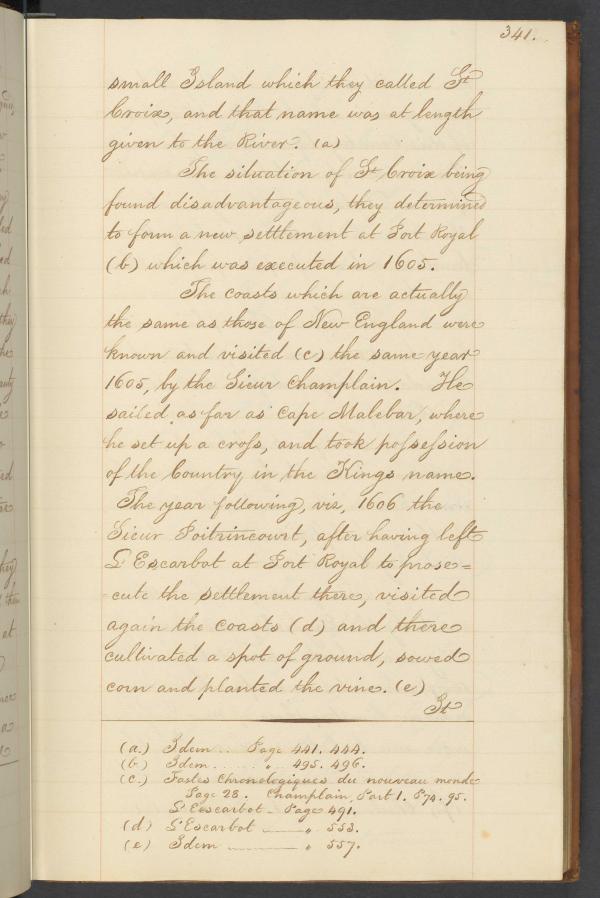 341.
small Island which they called St
Croix, and that name was at length
given to the River. (a)
The situation of St Croix being
found disadvantageous, they determined
to form a new settlement at Port Royal
(b) which was executed in 1605.
The coasts which are actually
the same as those of New England were
known and visited (c) the same year
1605, by the Sieur Champlain. He
sailed as far as Cape Malebar, where
he set up a cross, and took possession
of the Country in the Kings name.
The year following, viz, 1606 the
Sieur Poitrincourt, after having left
L'Escarbot at Port Royal to prose=
cute the settlement there, visited
again the coasts (d) and there
cultivated a spot of ground, sowed
corn and planted the vine. (e)
It
(a.) Idem .. Page 441. 444.
(b) Idem ....... " 495. 496.
(c.) Fastes Chronologiques du nouveau monde
Page 28. Champlain, Part 1. P 74. 95.
L'Escarbot - Page 491.
(d) L'Escarbot —— " 553.
(e) Idem —— " 557.